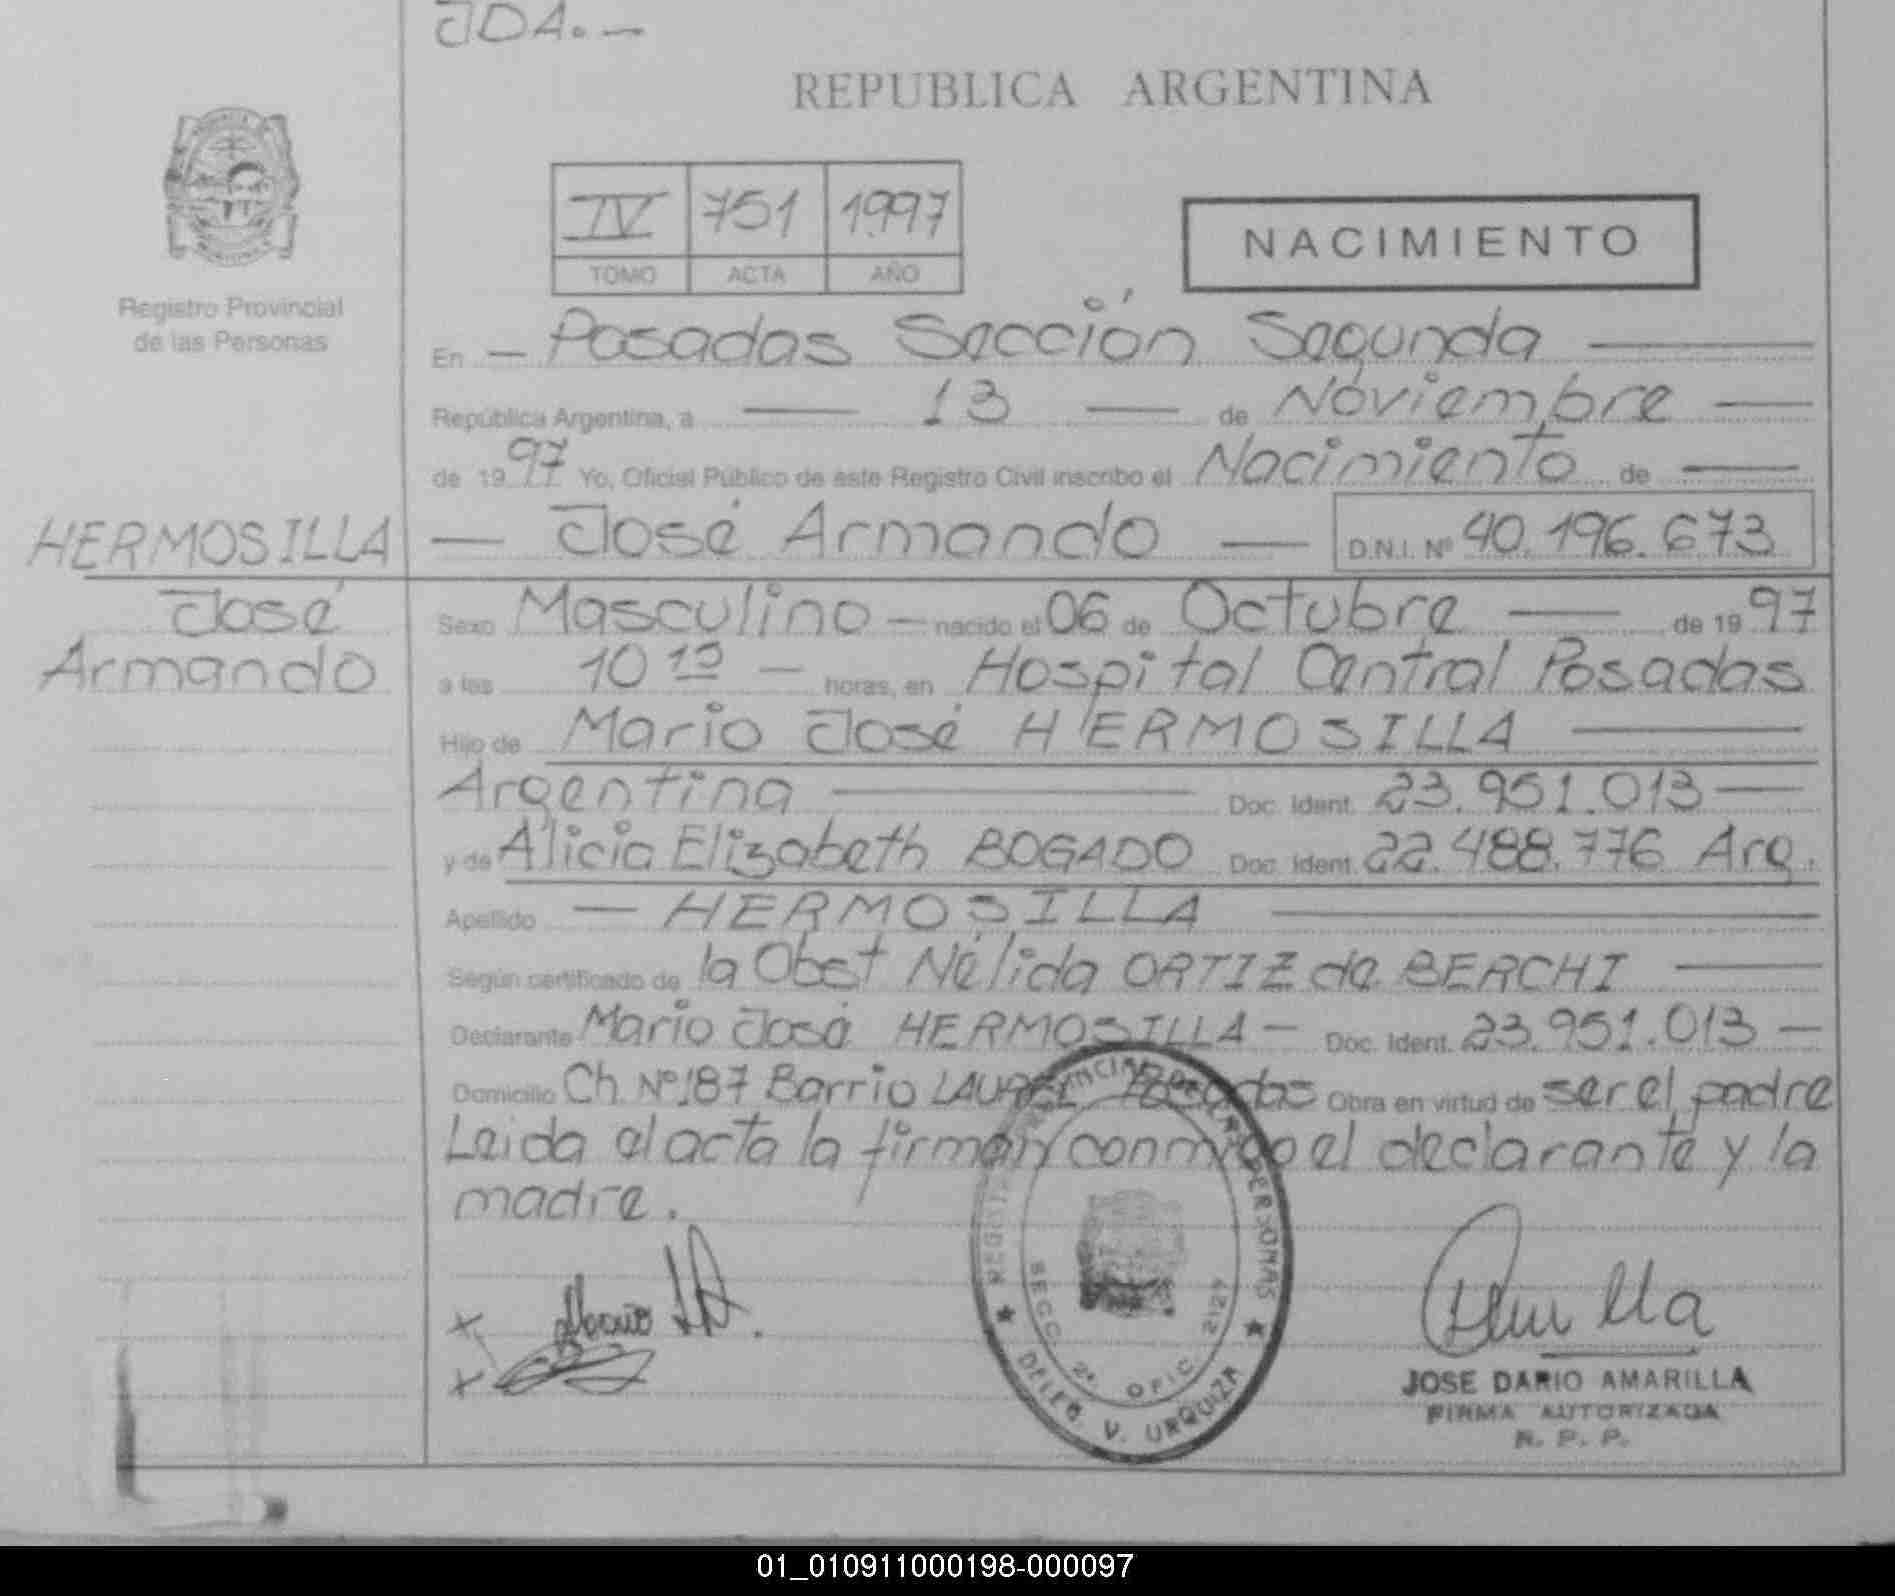 JDA.—
REPUBLICA ARGENTINA
IV 751 1997
TOMO ACTA AÑO
NACIMIENTO
Registro Provincial
de las Personas
En — Posadas Sección Segunda —
República Argentina, a — 13 — de Noviembre —
de 1997 Yo, Oficial Público de este Registro Civil inscribo el Nacimiento de —
— José Armando — D.N.I. Nº 40.196.673
HERMOSILLA
José
Armando
Sexo Masculino — nacido el 06 de Octubre — de 1997
a las 10 10 — horas, en Hospital Central Posadas
Hijo de Mario José HERMOSILLA —
Argentina — Doc. Ident. 23.951.013 —
y de Alicia Elizabeth BOGADO Doc. Ident. 22.488.776 Arg.
Apellido — HERMOSILLA —
Según certificado de la Obst Nélida ORTIZ de BERCHI —
Declarante Mario José HERMOSILLA — Doc. Ident. 23.951.013 —
Domicilio Ch. Nº 187 Barrio LAUREL Posadas Obra en virtud de ser el padre
Leida el acta la firman conmigo el declarante y la
madre.
REGISTRO PROVINCIAL DE LAS PERSONAS
SECC. 2ª. OFIC. 2127
DELEG. V. URQUIZA
JOSE DARIO AMARILLA
FIRMA AUTORIZADA
R. P. P.
01_010911000198-000097